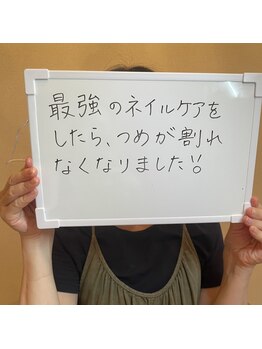 最強のネイルケアを
したら、つめが割れ
なくなりました!!